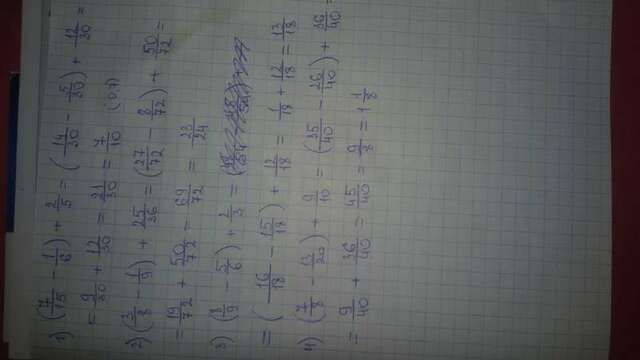 1) (7/15 - 1/6) + 2/5 = (14/30 - 5/30) + 12/30 =
= 9/30 + 12/30 = 21/30 = 7/10 (0,7)
2) (3/8 - 1/9) + 25/36 = (27/72 - 8/72) + 50/72 =
= 19/72 + 50/72 = 69/72 = 23/24
3) (8/9 - 5/6) + 2/3 =
= (16/18 - 15/18) + 12/18 = 1/18 + 12/18 = 13/18
4) (7/8 - 13/20) + 9/10 = (35/40 - 26/40) + 36/40 =
= 9/40 + 36/40 = 45/40 = 9/8 = 1 1/8